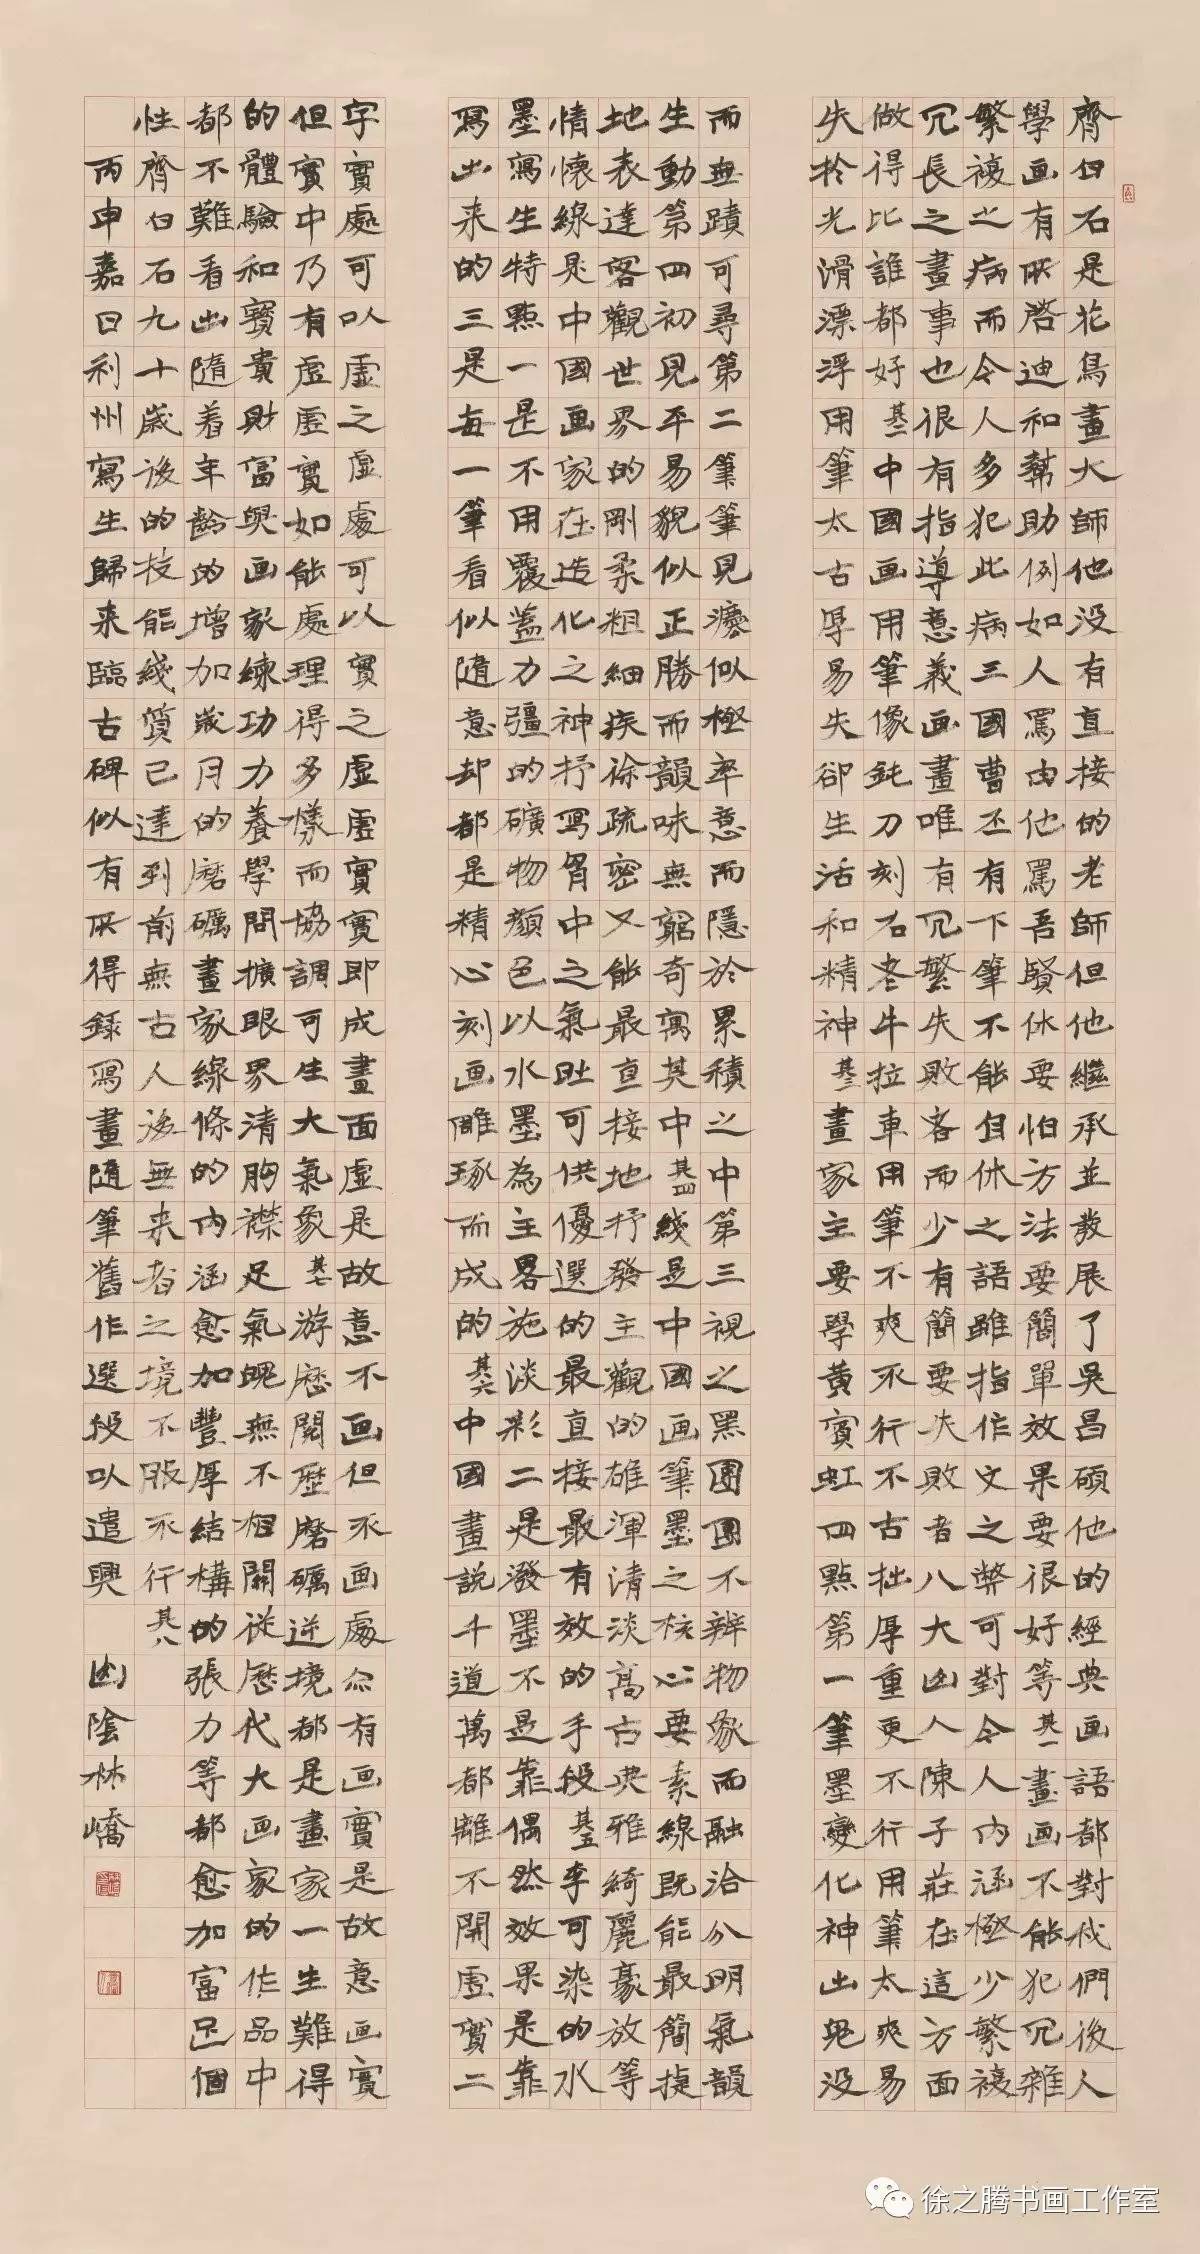 齊白石是花鳥畫大師他没有直接的老師但他繼承並發展了吳昌碩他的經典画語都對我們後人
學画有所啓迪和幫助例如人罵由他罵吾賢休要怕方法要簡單效果要很好等其一畫画不能犯冗雜
繁複之病而令人多犯此病三國曹丕有下筆不能自休之語雖指作文之弊可對今人内涵極少繁複
冗長之畫事也很有指導意義画畫唯有冗繁失敗者而少有簡要失敗者八大山人陳子莊在這方面
做得比誰都好其二中國画用筆像鈍刀刻石老牛拉車用筆不爽不行不古拙厚重更不行用筆太爽易
失於光滑漂浮用筆太古厚易失卻生活和精神其三畫家主要學黄賓虹四點第一筆墨變化神出鬼没
而無蹟可尋第二筆筆見瀽似極率意而隱於累積之中第三視之黑團團不辨物象而融洽分明氣韻
生動第四初見平易貌似正勝而韻味無窮奇寓其中其四綫是中國画筆墨之核心要素線既能最簡捷
地表達客觀世界的剛柔粗細疾徐疏密又能最直接地抒發主觀的雄渾清淡高古典雅綺麗豪放等
情懷線是中國画家在造化之神抒写胷中之氣吐可供優選的最直接最有效的手段其五李可染的水
墨寫生特點一是不用覆蓋力彊的礦物顏色以水墨為主畧施淡彩二是潑墨不是靠偶然效果是靠
寫出来的三是每一筆看似隨意却都是精心刻画雕琢而成的其六中國畫説千道萬都離不開虚實二
字實處可以虚之虚處可以實之虚虚實實即成畫面虚是故意不画但不画處亦有画實是故意画實
但實中乃有虚虚實如能處理得多樣而協調可生大氣象其七游歷閱歷磨礪逆境都是畫家一生難得
的體驗和寶貴財富與画家練功力養學問擴眼界清胸襟足氣魄無不相關從歷代大画家的作品中
都不難看出隨着年齡的增加歲月的磨礪畫家線條的内涵愈加豐厚結構的張力等都愈加富足個
性齊白石九十歲後的技能綫質已達到前無古人後無来者之境不服不行其八
丙申嘉日利州寫生歸来臨古碑似有所得録写畫隨筆舊作選段以遣興 山陰林嶠
徐之腾书画工作室